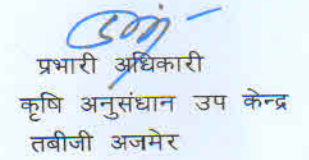 प्रभारी अधिकारी
कृषि अनुसंधान उप केन्द्र
तबीजी अजमेर